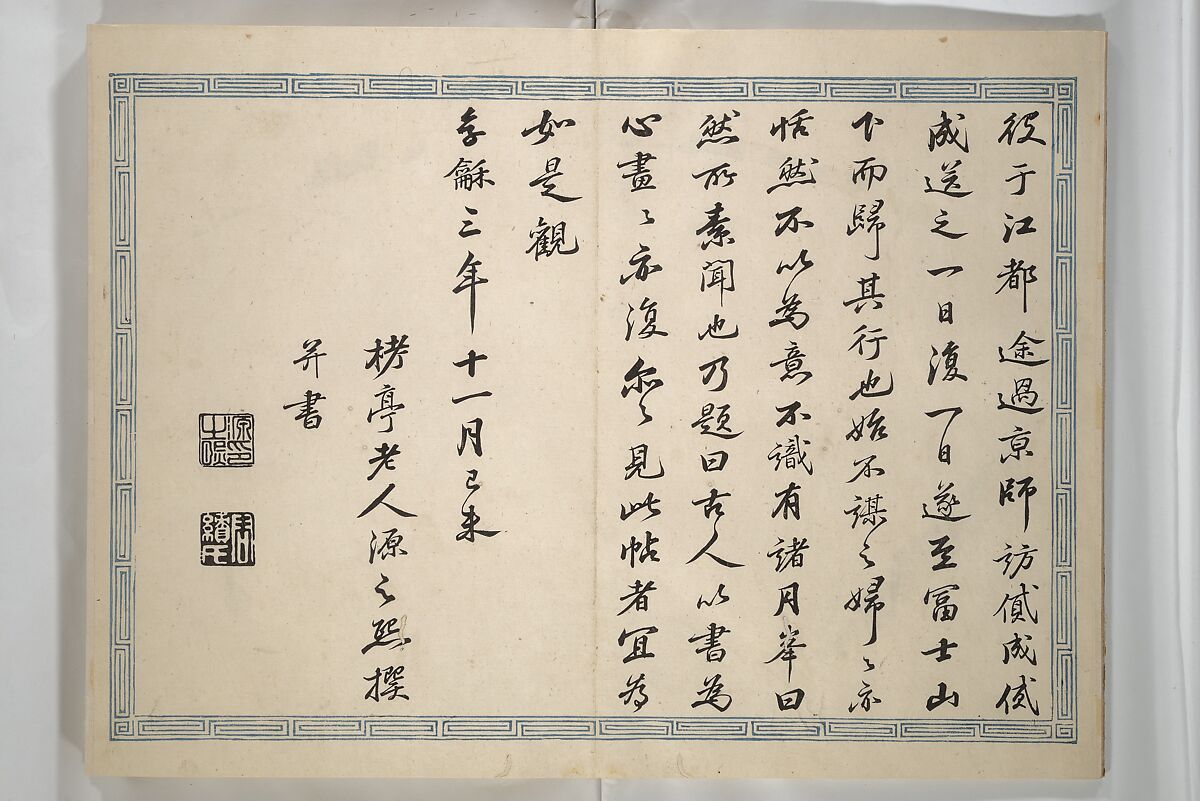 役于江都途過京師訪貸成貸
成送之一日復一日遂至冨士山
下而歸其行也始不謀之婦〻亦
恬然不以為意不識有諸月峯曰
然所素聞也乃題曰古人以書為
心畫〻亦復尓〻見此帖者宜為
如是觀
享龢三年十一月己未
栲亭老人源之熙撰
并書
源印之熙
君績氏